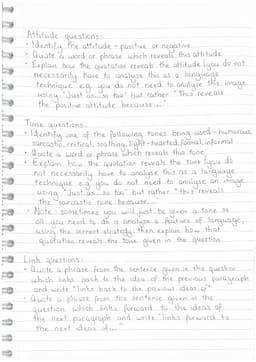 Attitude questions:
• Identify the attitude - positive or negative
• Quote a word or phrase which reveals this attitude
• Explain how the quotation reveals the attitude (you do not
necessarily have to analyse this as a language
technique e.g. you do not need to analyse this image
using "Just as... so too" but rather "This reveals
the positive attitude because..."
Tone questions:
• Identify one of the following tones being used - humorous,
sarcastic, critical, scathing, light-hearted, formal, informal
• Quote a word or phrase which reveals this tone
• Explain how the quotation reveals the tone (you do
not necessarily have to analyse this as a language
technique e.g. you do not need to analyse an image
using "Just as... so too" but rather "this reveals
the sarcastic tone because..."
• Note: sometimes you will just be given a tone so
all you need to do is analyse a feature of language,
using the correct strategy, then explain how that
quotation reveals the tone given in the question
Link questions:
• Quote a phrase from the sentence given in the question
which links back to the idea of the previous paragraph
and write "links back to the previous ideas of"
• Quote a phrase from the sentence given in the
question which links forward to the ideas of
the next paragraph and write "links forward to
the next ideas of..."